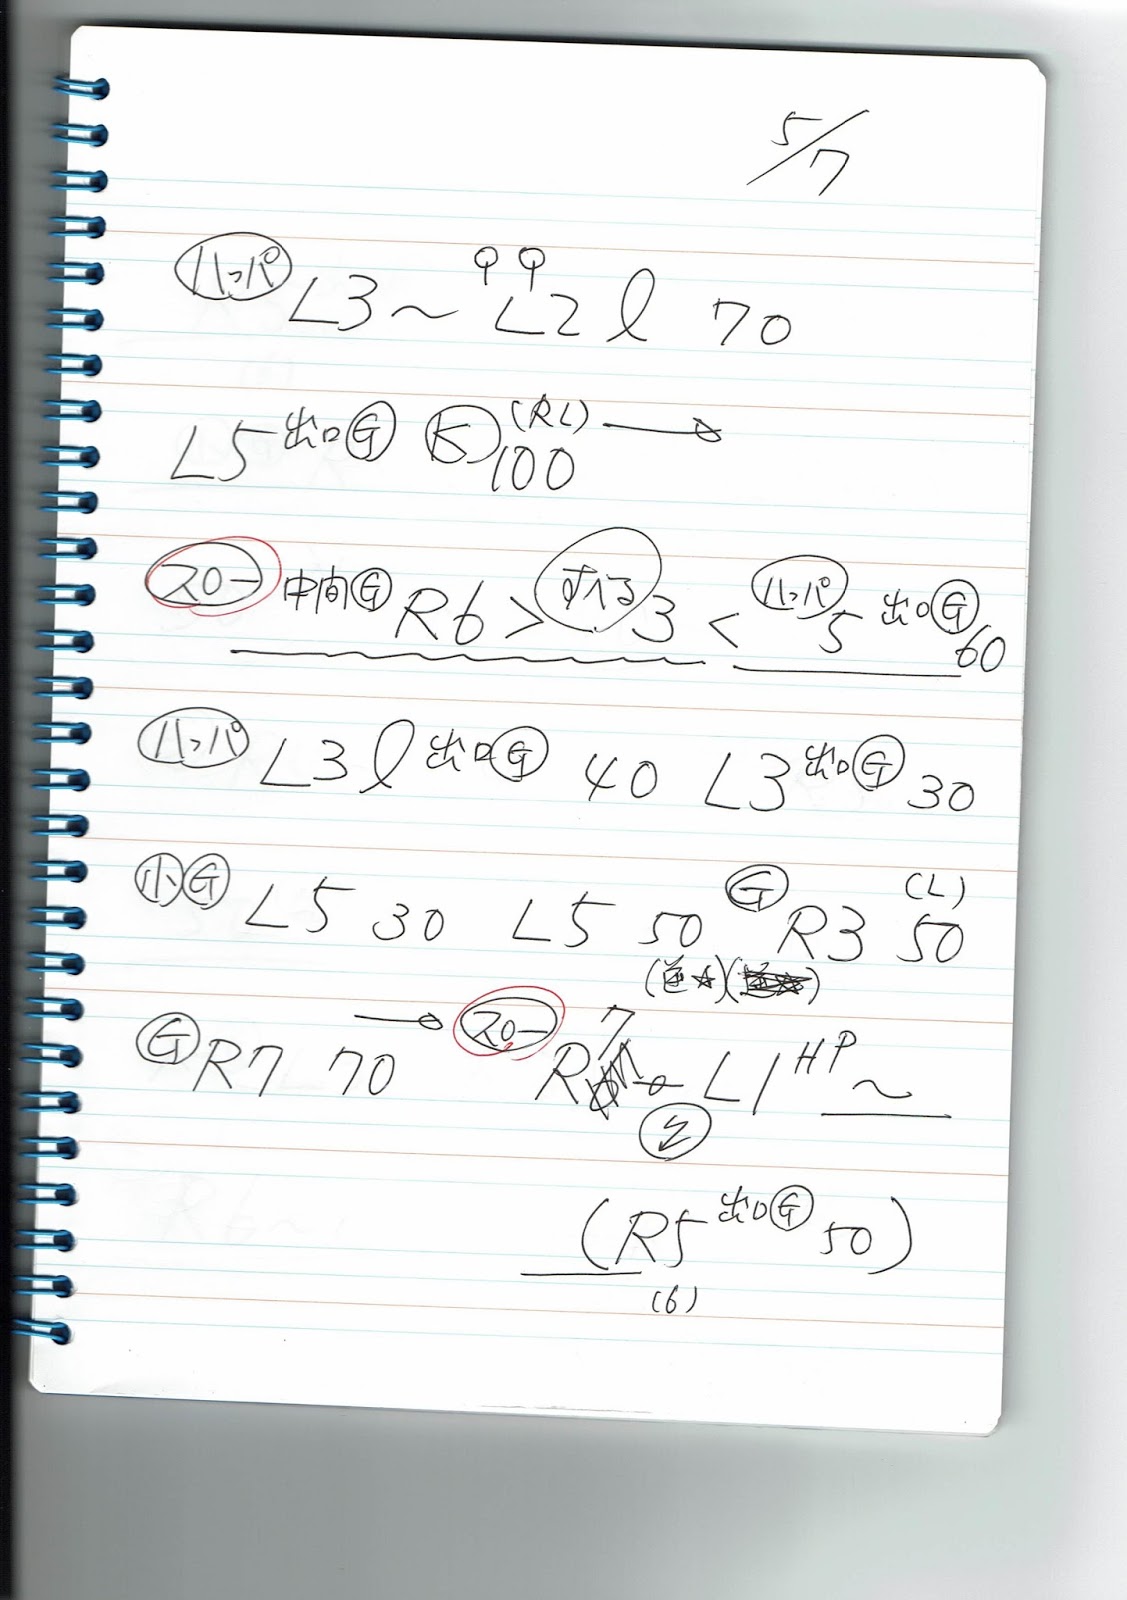 5/7
ハッパ L3〜 L2 l 70
L5 出口G K (RL) 100 →
スロー 中間G R6 > すべる 3 < ハッパ 5 出口G 60
ハッパ L3 l 出口G 40 L3 出口G 30
小G L5 30 L5 50 G R3 (L) 50
(逆☆)
G R7 70 → スロー R7 L1 HP 〜
(R5 出口G 50)
(6)